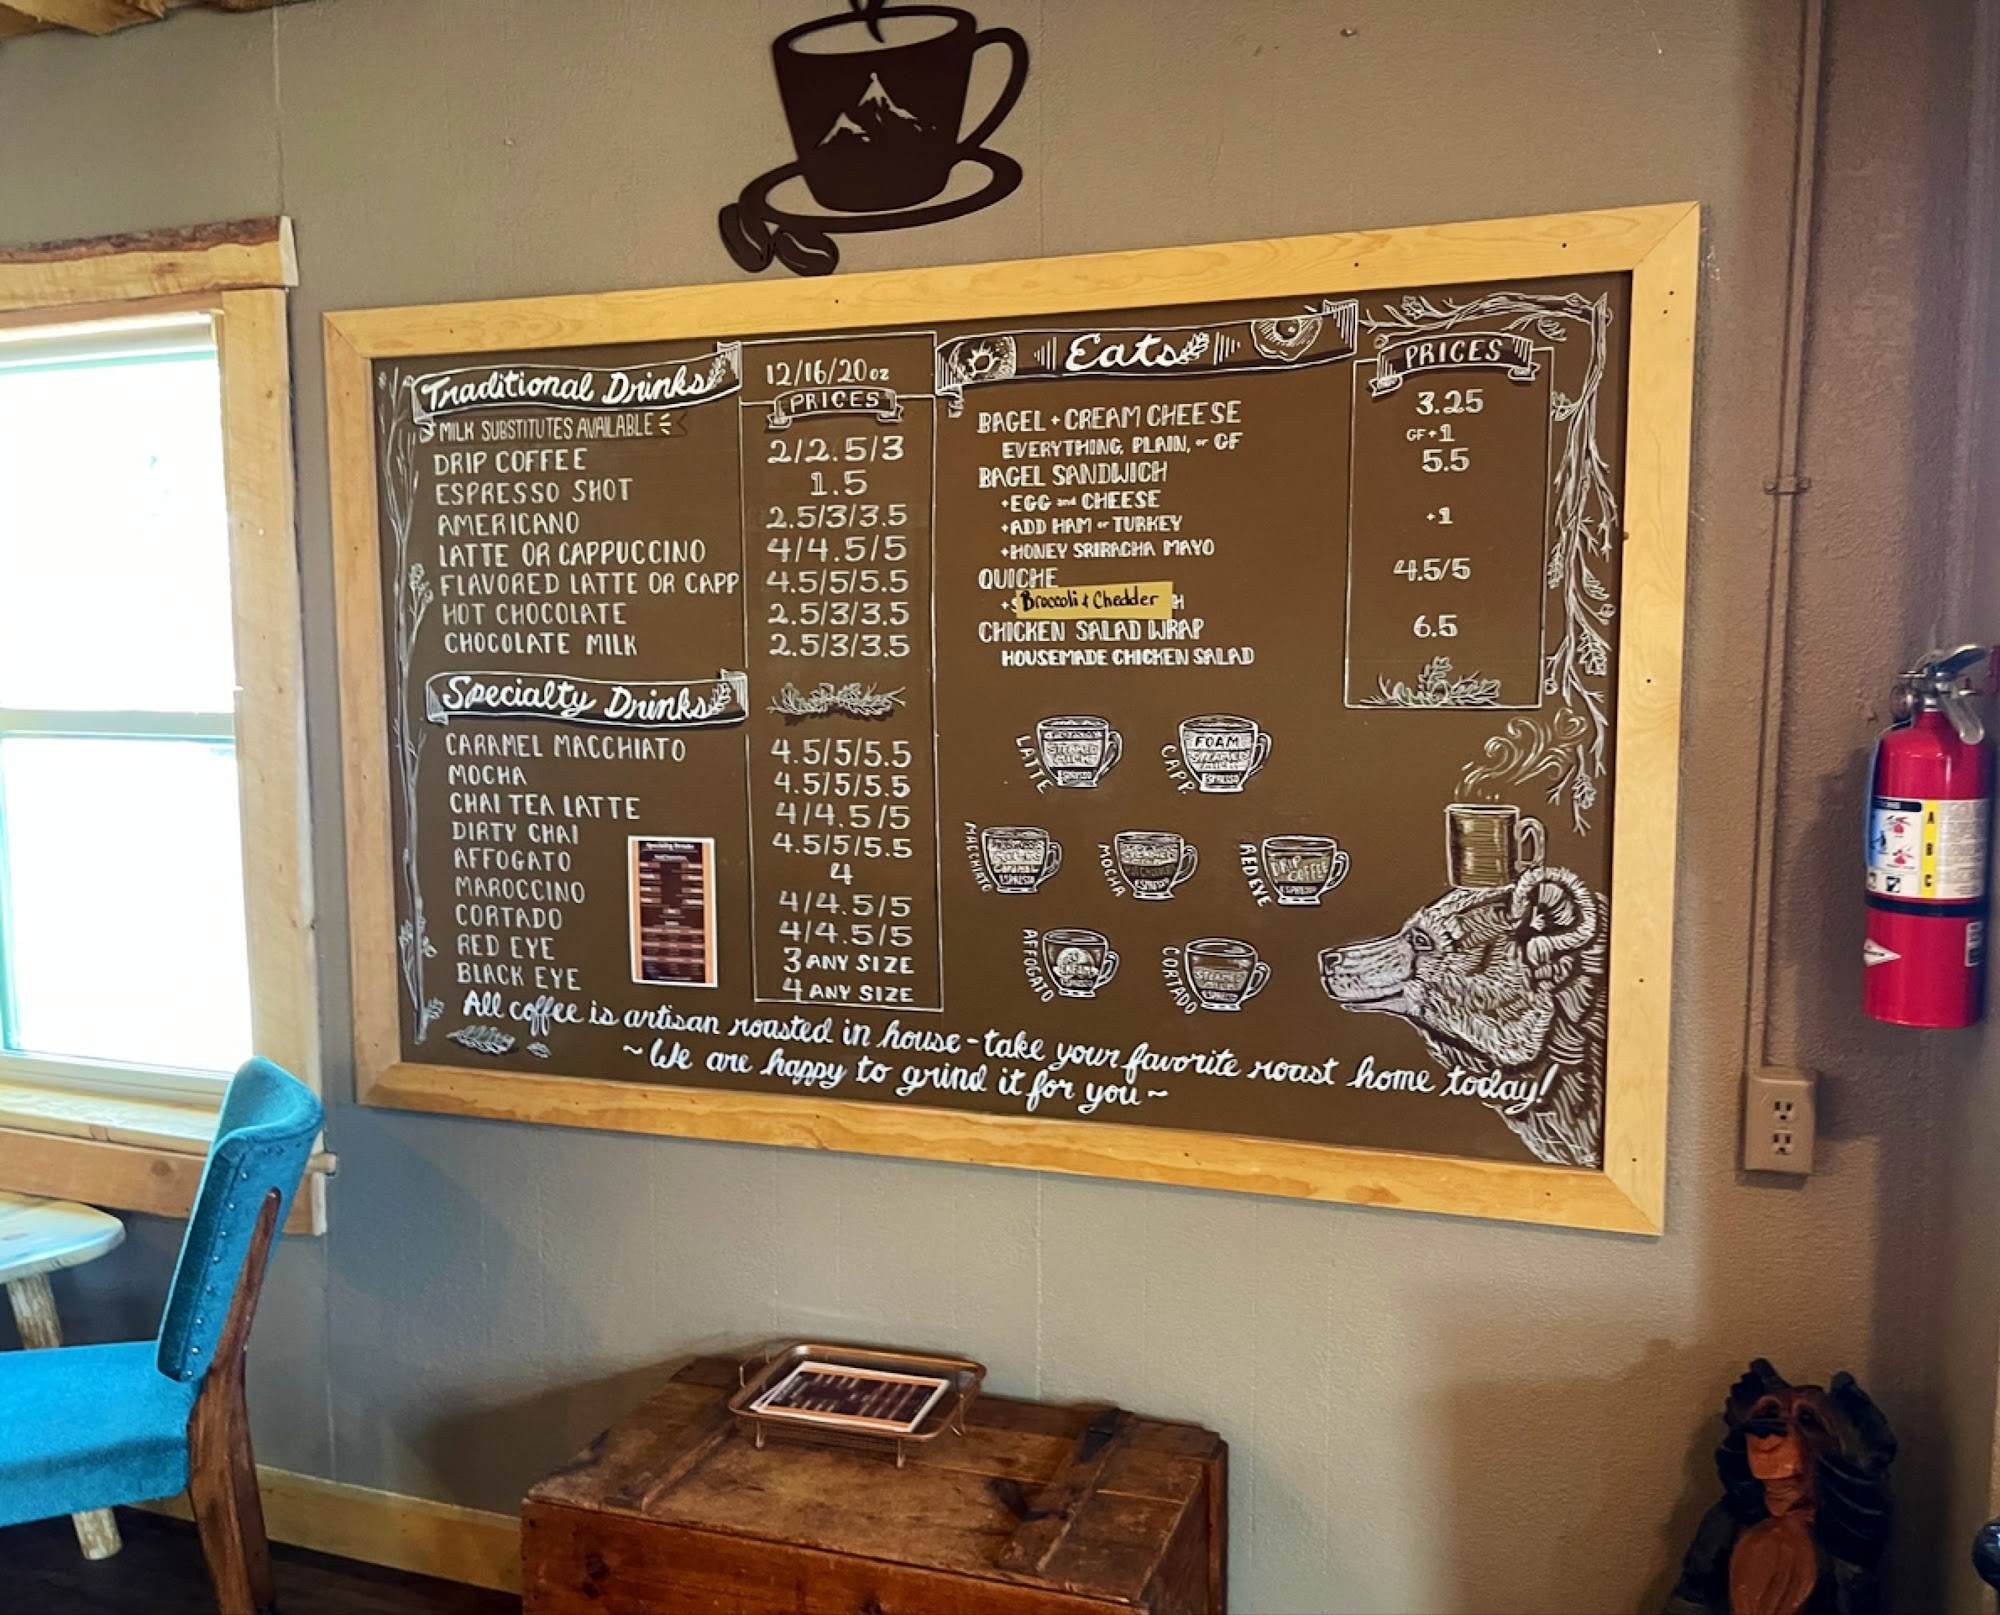 Traditional Drinks
12/16/20 oz
PRICES
MILK SUBSTITUTES AVAILABLE
DRIP COFFEE 2/2.5/3
ESPRESSO SHOT 1.5
AMERICANO 2.5/3/3.5
LATTE OR CAPPUCCINO 4/4.5/5
FLAVORED LATTE OR CAPP 4.5/5/5.5
HOT CHOCOLATE 2.5/3/3.5
CHOCOLATE MILK 2.5/3/3.5
Specialty Drinks
CARAMEL MACCHIATO 4.5/5/5.5
MOCHA 4.5/5/5.5
CHAI TEA LATTE 4/4.5/5
DIRTY CHAI 4.5/5/5.5
AFFOGATO 4
MAROCCINO 4/4.5/5
CORTADO 4/4.5/5
RED EYE 3 ANY SIZE
BLACK EYE 4 ANY SIZE
Specialty Drinks
Eats
PRICES
BAGEL + CREAM CHEESE 3.25
EVERYTHING, PLAIN, or GF GF +1
BAGEL SANDWICH 5.5
+EGG and CHEESE
+ADD HAM or TURKEY +1
+HONEY SRIRACHA MAYO
QUICHE 4.5/5
Broccoli & Chedder
CHICKEN SALAD WRAP 6.5
HOUSEMADE CHICKEN SALAD
LATTE
STEAMED
MILK
ESPRESSO
CAPP.
FOAM
STEAMED
MILK
ESPRESSO
MACCHIATO
CARAMEL
ESPRESSO
MOCHA
STEAMED
MILK
CHOCOLATE
ESPRESSO
REDEYE
DRIP
COFFEE
ESPRESSO
AFFOGATO
ICE
CREAM
ESPRESSO
CORTADO
STEAMED
MILK
ESPRESSO
All coffee is artisan roasted in house - take your favorite roast home today!
~ We are happy to grind it for you ~
A
B
C